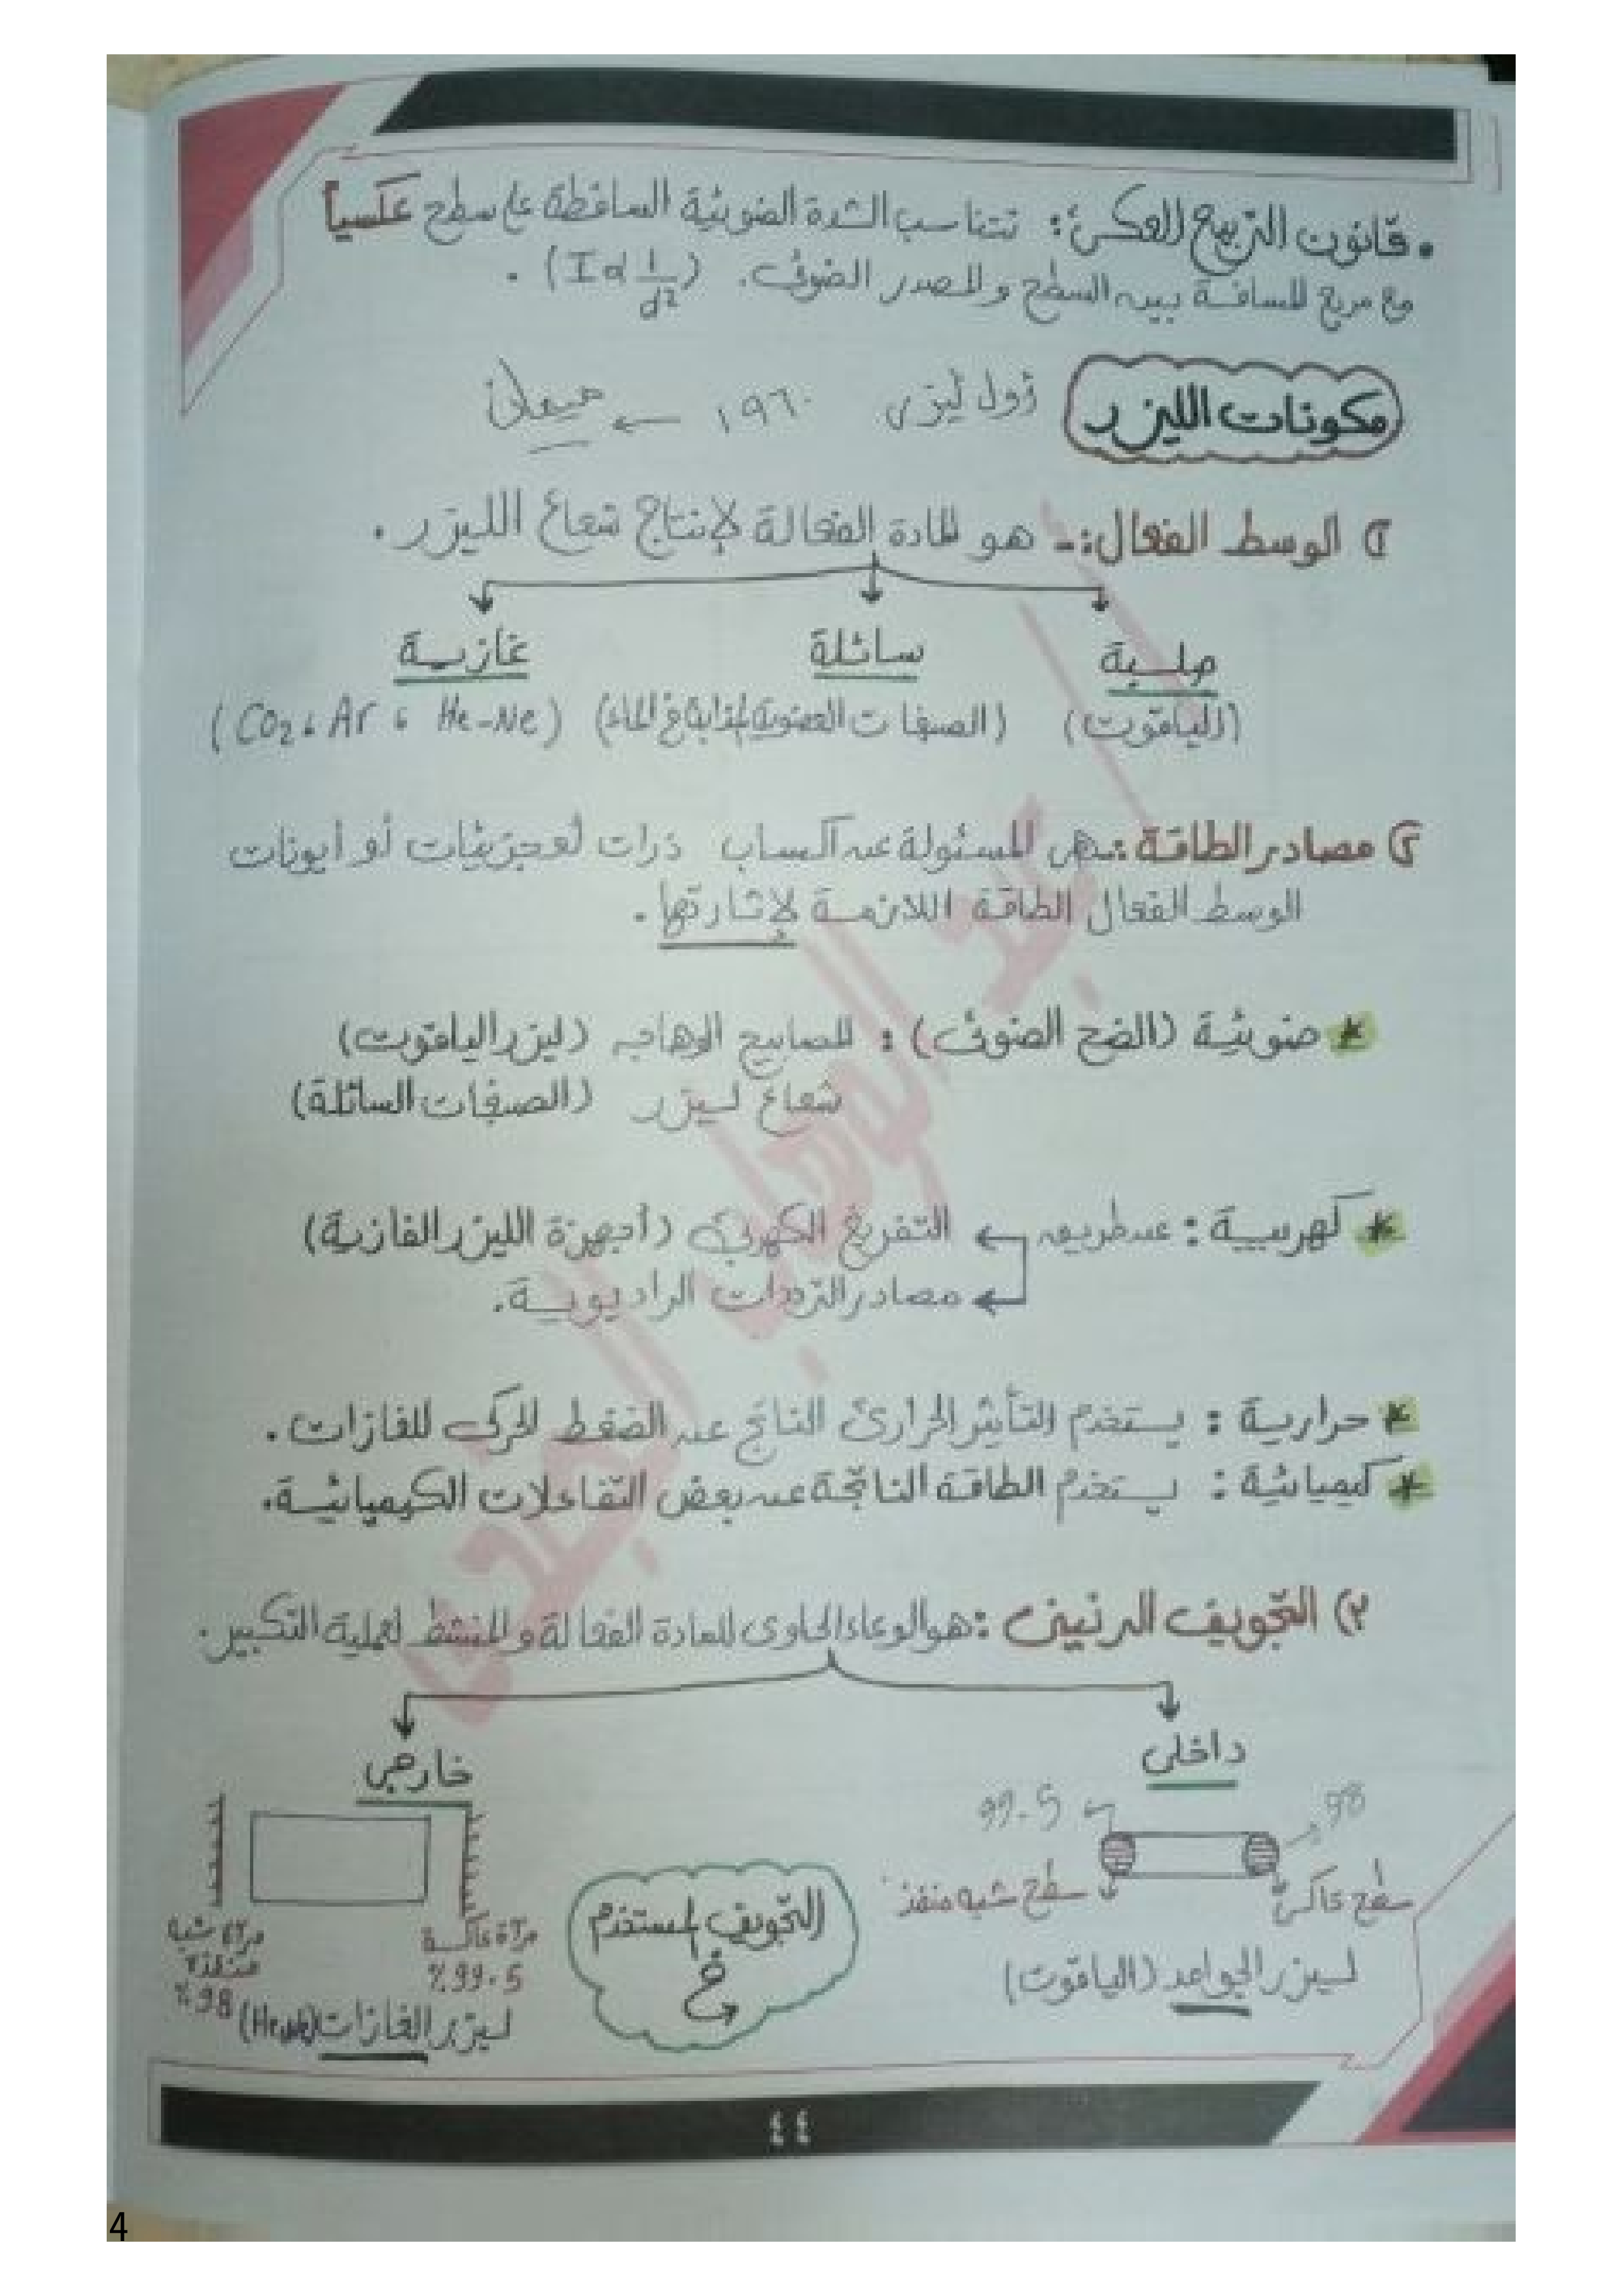 • قانون التربيع العكسى: تتناسب الشدة الضوئية الساقطة على سطح عكسياً
مع مربع المسافة بين السطح والمصدر الضوئى. (I α 1/d²) .
مكونات الليزر أول ليزر ١٩٦٠ ←
١) الوسط الفعال:- هو المادة الفعالة لإنتاج شعاع الليزر.
صلبة سائلة غازية
(الياقوت) (الصبغات العضوية المذابة فى الماء) (CO2 ، Ar ، He-Ne)
٢) مصادر الطاقة: هى المسئولة عن اكساب ذرات أو جزيئات أو أيونات
الوسط الفعال الطاقة اللازمة لإثارتها.
* ضوئية (الضخ الضوئى) : المصابيح الوهاجه (ليزر الياقوت)
شعاع ليزر (الصبغات السائلة)
* كهربية : عن طريق ← التفريغ الكهربى (أجهزة الليزر الغازية)
← مصادر الترددات الراديوية.
* حرارية : يستخدم التأثير الحرارى الناتج عن الضغط الحركى للغازات.
* كيميائية : يستخدم الطاقة الناتجة عن بعض التفاعلات الكيميائية.
٣) التجويف الرنينى : هو الوعاء الحاوى للمادة الفعالة والمنشط لعملية التكبير.
داخلى خارجى
98 99.5
سطح عاكس سطح شبه منفذ
التجويف المستخدم
فى
مرآة عاكسة
99.5%
مرآة شبه
منفذة
98%
ليزر الجوامد (الياقوت)
ليزر الغازات (He-Ne)
٤٤
4